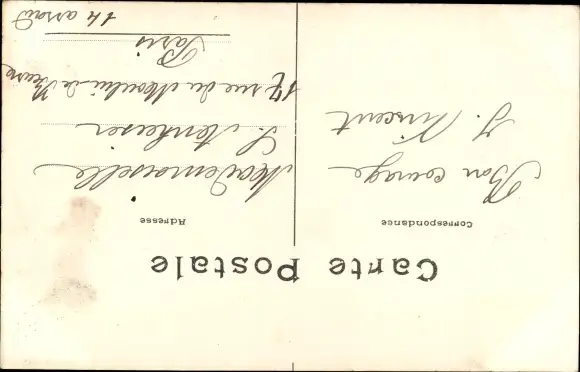 Carte Postale
Correspondance
Bon courage
J. Vincent
Adresse
Mademoiselle
17 rue du Moulin de Beurre
Paris
14 arrond